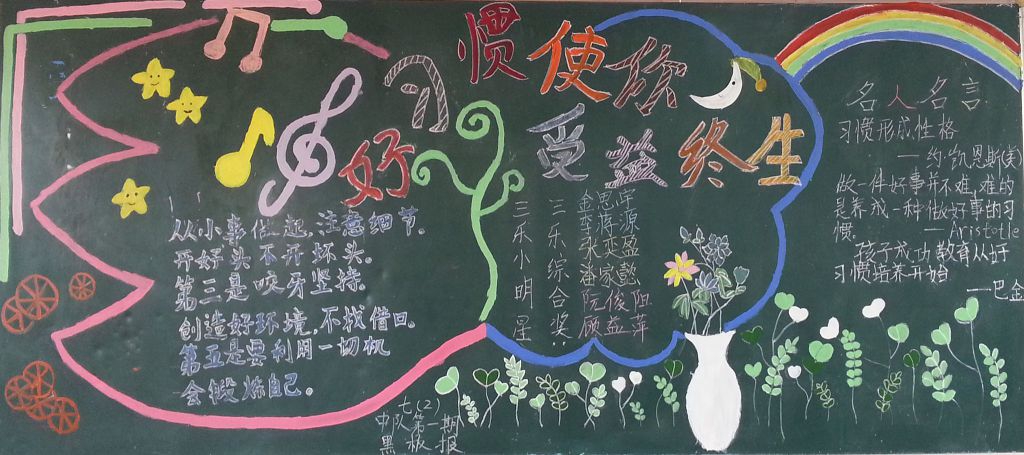 好习惯使你
受益终生
从小事做起,注意细节。
开好头不开坏头。
第三是咬牙坚持。
创造好环境,不找借口。
第五是要利用一切机
会锻炼自己。
三乐小明星
三乐综合奖:
蒋源
潘家懿
阮俊阳
顾益萍
名人名言
习惯形成性格
—约·凯恩斯(美)
做一件好事并不难,难的
是养成一种做好事的习
惯。 —Aristotle
孩子成功教育从好
习惯培养开始
—巴金
七(2)
中队第一期
黑板报